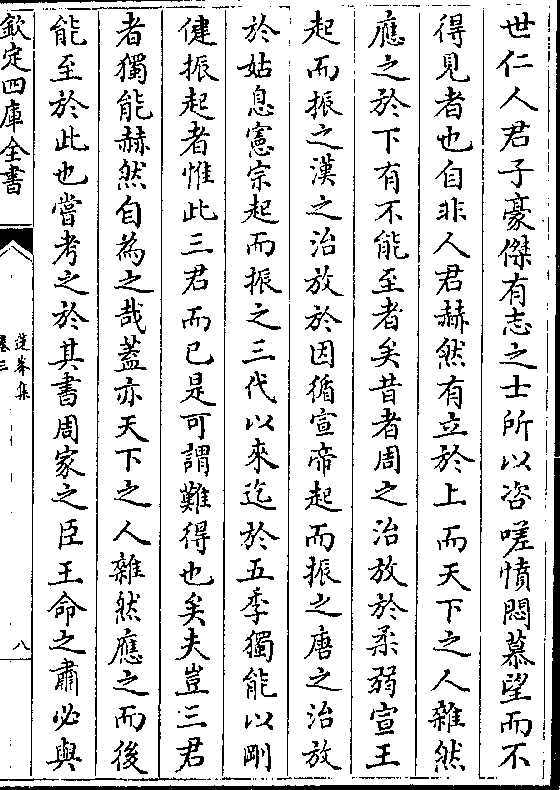 世仁人君子豪傑有志之士所以咨嗟憤悶慕望而不
得見者也自非人君赫然有立於上而天下之人雜然
應之於下有不能至者矣昔者周之治放於柔弱宣王
起而振之漢之治放於因循宣帝起而振之唐之治放
於姑息憲宗起而振之三代以來迄於五季獨能以剛
健振起者惟此三君而已是可謂難得也矣夫豈三君
者獨能赫然自為之哉蓋亦天下之人雜然應之而後
能至於此也嘗考之於其書周家之臣王命之肅必與
欽定四庫全書
蓮峯集
卷三
八